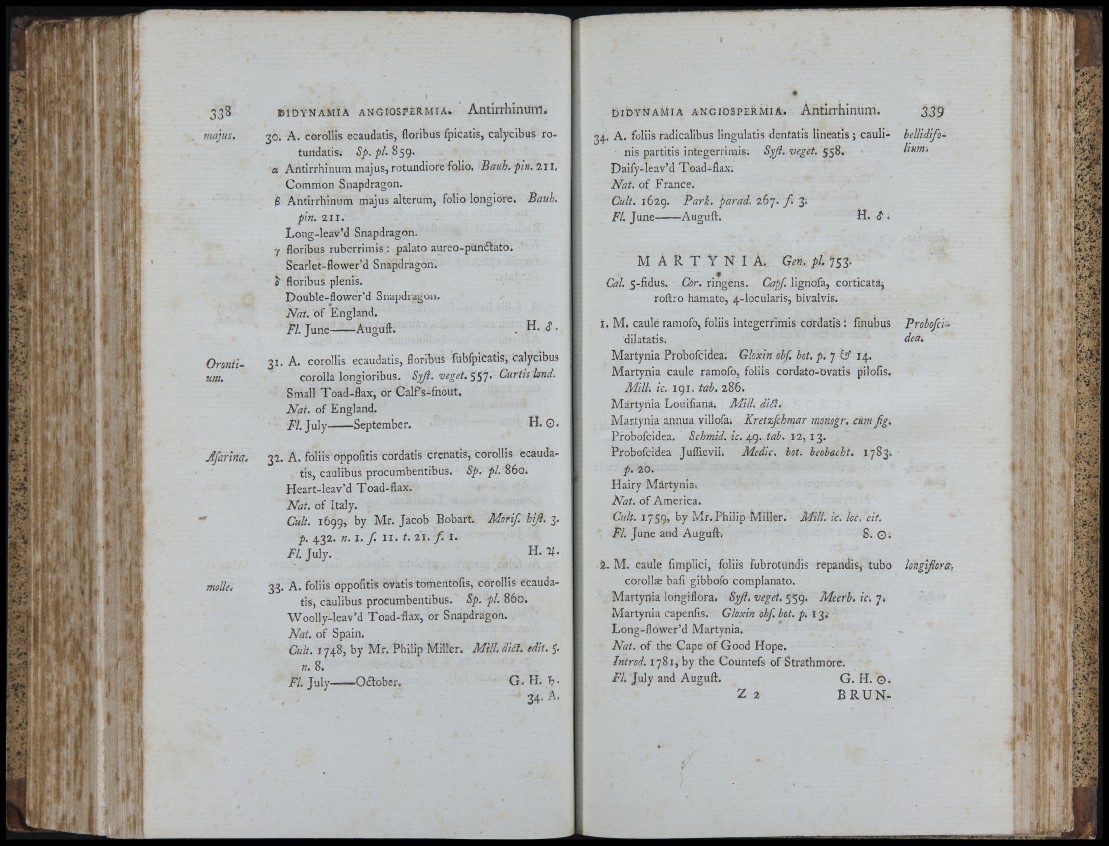 338 DIDYNAMIA ANGIOSPERMIA. Antirrhinum.
majus. 30. A. corollis ecaudatis, floribus ſpicatis, calycibus ro-
tundatis. Sp. pl. 859.
α Antirrhinum majus, rotundiore folio. Bauh. pin. 211.
Common Snapdragon.
β Antirrhinum majus alterum, folio longiore. Bauh.
pin. 211.
Long-leav'd Snapdragon.
γ floribus ruberrimis : palato aureo-punctato.
Scarlet-flower'd Snapdragon.
δ floribus plenis.
Double-flower'd Snapdragon.
Nat. of England.
Fl. June——Auguſt. H. ♂.
Oronti- 31. A. corollis ecaudatis, floribus ſubſpicatis, calycibus
um. corolla longioribus. Syſt. veget. 557. Curtis lond.
Small Toad-flax, or Calf's-ſnout.
Nat. of England.
Fl. July——September. H. ☉.
Aſarina. 32. A. foliis oppoſitis cordatis crenatis, corollis ecauda-
tis, caulibus procumbentibus. Sp. pl. 860.
Heart-leav'd Toad-flax.
Nat. of Italy.
Cult. 1699, by Mr. Jacob Bobart. Moriſ. hiſt. 3.
p. 432. n. 1. ſ. 11. t. 21. f. 1.
Fl. July. H. ♃.
molle. 33. A. foliis oppoſitis ovatis tomentoſis, corollis ecauda-
tis, caulibus procumbentibus. Sp. pl. 860.
Woolly-leav'd Toad-flax, or Snapdragon.
Nat. of Spain.
Cult. 1748, by Mr. Philip Miller. Mill. dict. edit. 5.
n. 8.
Fl. July——October. G. H. ♄.
34. A.
DIDYNAMIA ANGIOSPERMIA. Antirrhinum. 339
34. A. foliis radicalibus lingulatis dentatis lineatis ; cauli- bellidifo-
nis partitis integerrimis. Syſt. veget. 558. lium.
Daiſy-leav'd Toad-flax.
Nat. of France.
Cult. 1629. Park. parad. 267. f. 3.
Fl. June——Auguſt. H. ♂.
MARTYNIA. Gen. pl. 753.
Cal. 5-fidus. Cor. ringens. Capſ. lignoſa, corticata,
roſtro hamato, 4-locularis, bivalvis.
1. M. caule ramoſo, foliis integerrimis cordatis : ſinubus Proboſci-
dilatatis. dea.
Martynia Proboſcidea. Gloxin obſ. bot. p. 7 & 14.
Martynia caule ramoſo, foliis cordato-ovatis piloſis.
Mill. ic. 191. tab. 286.
Martynia Louiſiana. Mill. dict.
Martynia annua villoſa. Kretzſchmar monogr. cum fig.
Proboſcidea. Schmid. ic. 49. tab. 12, 13.
Proboſcidea Juſſievii. Medic. bot. beobacht. 1783.
p. 20.
Hairy Martynia.
Nat. of America.
Cult. 1759, by Mr. Philip Miller. Mill. ic. loc. cit.
Fl. June and Auguſt. S. ☉.
2. M. caule ſimplici, foliis ſubrotundis repandis, tubo longiflora.
corollæ baſi gibboſo complanato.
Martynia longiflora. Syſt. veget. 559. Meerb. ic. 7.
Martynia capenſis. Gloxin obſ. bot. p. 13.
Long-flower'd Martynia.
Nat. of the Cape of Good Hope.
Introd. 1781, by the Counteſs of Strathmore.
Fl. July and Auguſt. G. H. ☉.
Z 2 BRUN-